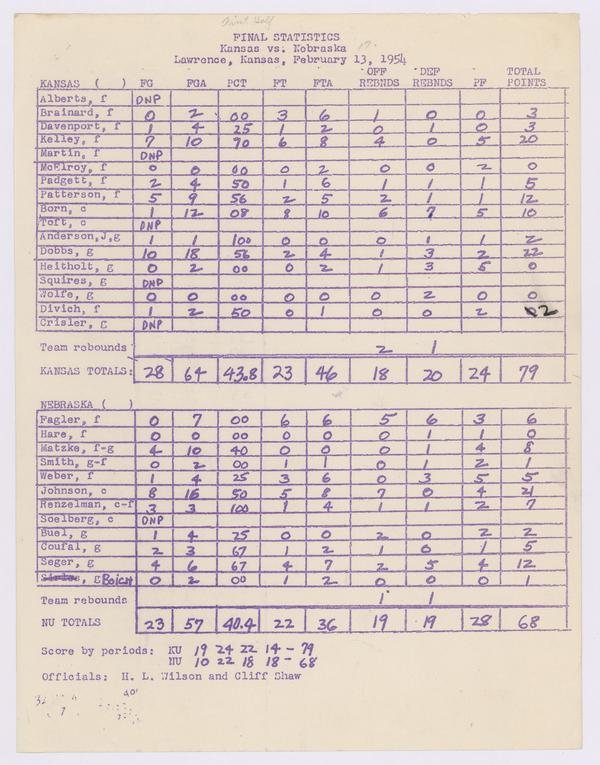 First Half
FINAL STATISTICS
Kansas vs. Nebraska
Lawrence, Kansas, February 13, 1954
OFF DEF TOTAL
KANSAS ( ) FG FGA PCT FT FTA REBNDS REBNDS PF POINTS
Alberts, f DNP
Brainard, f 0 2 00 3 6 1 0 0 3
Davenport, f 1 4 25 1 2 0 1 0 3
Kelley, f 7 10 70 6 8 4 0 5 20
Martin, f DNP
McElroy, f 0 0 00 0 2 0 0 2 0
Padgett, f 2 4 50 1 6 1 1 1 5
Patterson, f 5 9 56 2 5 2 1 1 12
Born, c 1 12 08 8 10 6 7 5 10
Toft, c DNP
Anderson,J,g 1 1 100 0 0 0 1 1 2
Dobbs, g 10 18 56 2 4 1 3 2 22
Heitholt, g 0 2 00 0 2 1 3 5 0
Squires, g DNP
Wolfe, g 0 0 00 0 0 0 2 0 0
Divich, f 1 2 50 0 1 0 0 2 02
Crisler, g DNP
Team rebounds 2 1
KANSAS TOTALS: 28 64 43.8 23 46 18 20 24 79
NEBRASKA ( )
Fagler, f 0 7 00 6 6 5 6 3 6
Hare, f 0 0 00 0 0 0 1 1 0
Matzke, f-g 4 10 40 0 0 0 1 4 8
Smith, g-f 0 2 00 1 1 0 1 2 1
Weber, f 1 4 25 3 6 0 3 5 5
Johnson, c 8 16 50 5 8 7 0 4 21
Renzelman, c-f 3 3 100 1 4 1 1 2 7
Soelberg, c DNP
Buel, g 1 4 25 0 0 2 0 2 2
Coufal, g 2 3 67 1 2 1 0 1 5
Seger, g 4 6 67 4 7 2 5 4 12
g Boich 0 2 00 1 2 0 0 0 1
Team rebounds 1 1
NU TOTALS 23 57 40.4 22 36 19 19 28 68
Score by periods: KU 19 24 22 14 - 79
NU 10 22 18 18 - 68
Officials: H. L. Wilson and Cliff Shaw